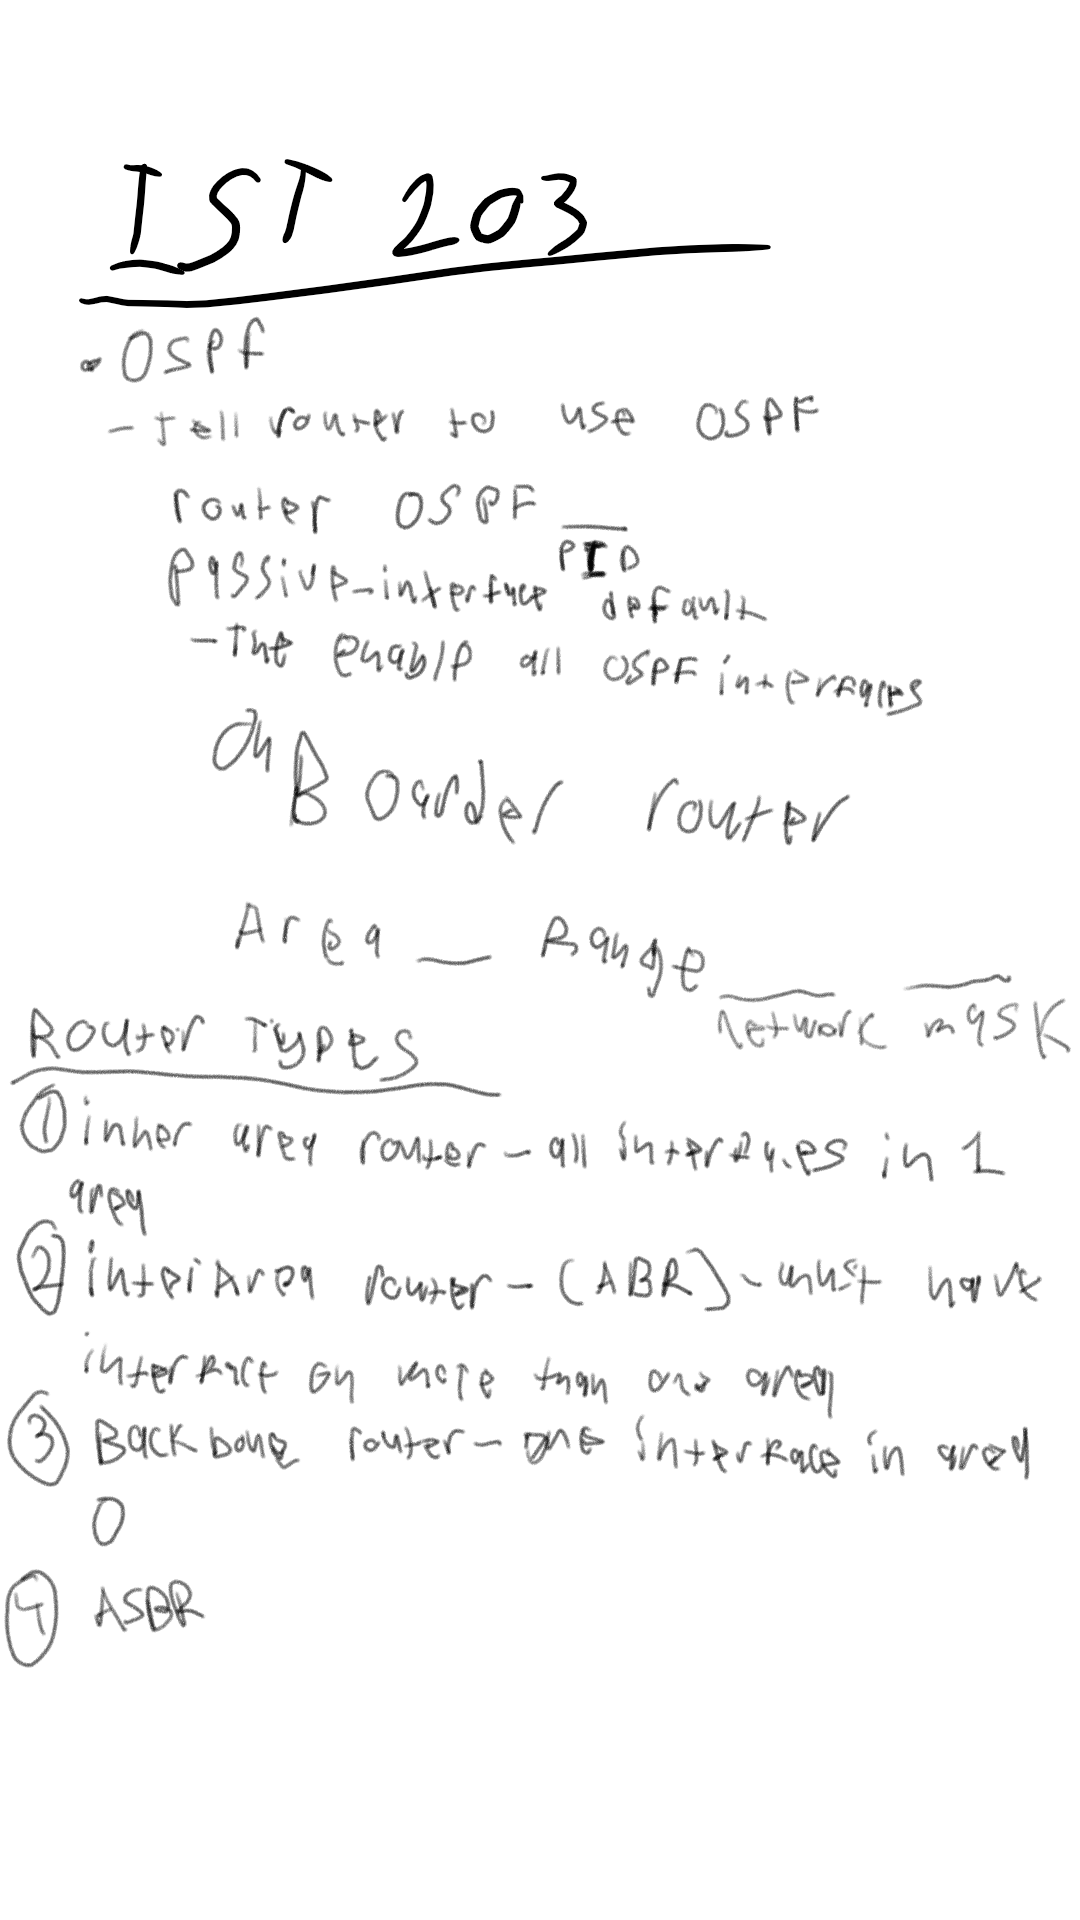 IST 203
- OSPF
- Tell router to use OSPF
router OSPF ___
PID
passive-interface default
- The enable all OSPF interfaces
On Boarder router
Area ___ Range ___ ___
network mask
Router Types
① inner area router - all interfaces in 1
area
② interArea router - (ABR) - must have
interface on more than one area
③ Backbone router - one interface in area
0
④ ASBR